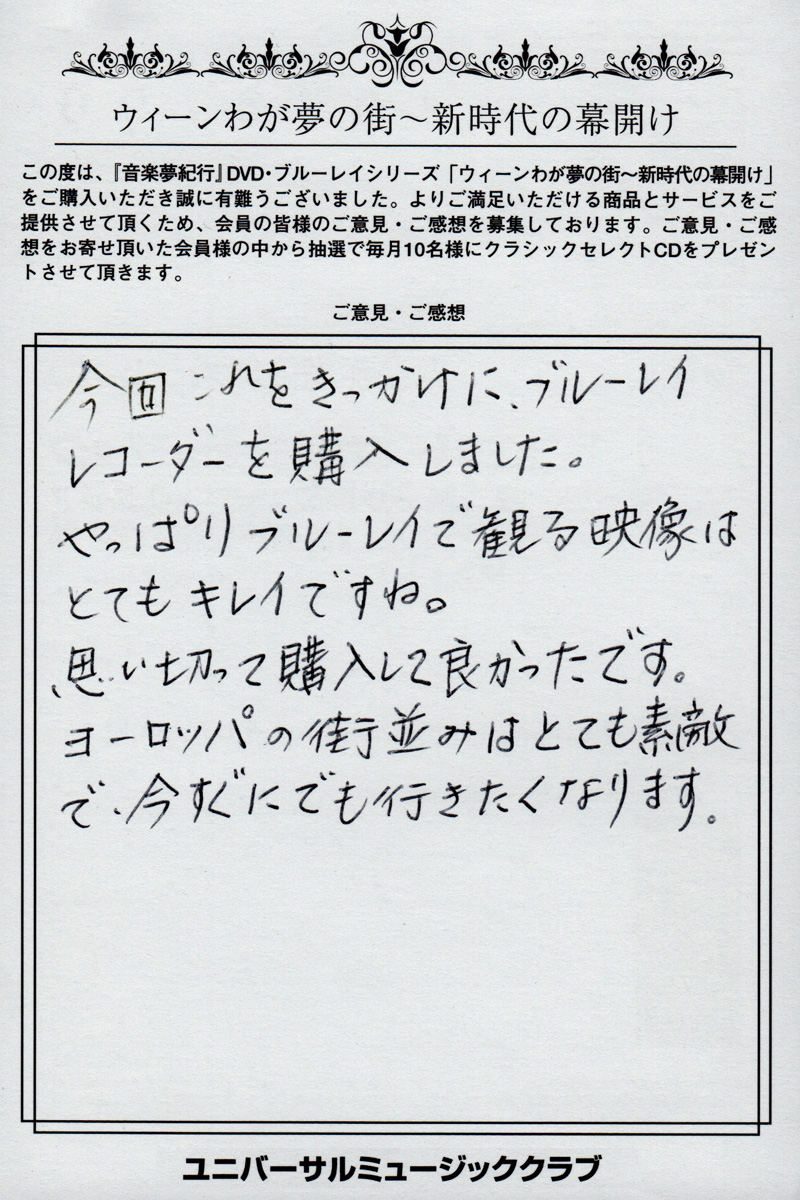 ウィーンわが夢の街～新時代の幕開け
この度は、『音楽夢紀行』DVD・ブルーレイシリーズ「ウィーンわが夢の街～新時代の幕開け」
をご購入いただき誠に有難うございました。よりご満足いただける商品とサービスをご
提供させて頂くため、会員の皆様のご意見・ご感想を募集しております。ご意見・ご感
想をお寄せ頂いた会員様の中から抽選で毎月10名様にクラシックセレクトCDをプレゼン
トさせて頂きます。
ご意見・ご感想
今回これをきっかけに、ブルーレイ
レコーダーを購入しました。
やっぱりブルーレイで観る映像は
とてもキレイですね。
思い切って購入して良かったです。
ヨーロッパの街並みはとても素敵
で、今すぐにでも行きたくなります。
ユニバーサルミュージッククラブ